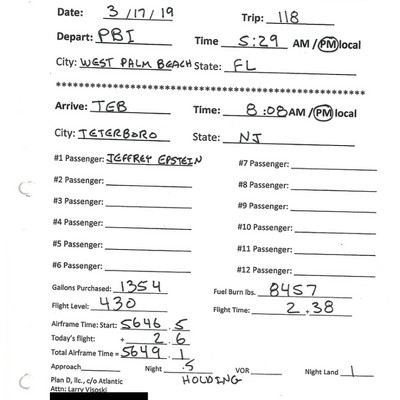 Date: 3/17/19 Trip: 118
Depart: PBI Time 5:29 AM / PM local
City: WEST PALM BEACH State: FL
************************************************************
Arrive: TEB Time: 8:08 AM / PM local
City: TETERBORO State: NJ
#1 Passenger: JEFFREY EPSTEIN #7 Passenger:
#2 Passenger: #8 Passenger:
#3 Passenger: #9 Passenger:
#4 Passenger: #10 Passenger:
#5 Passenger: #11 Passenger:
#6 Passenger: #12 Passenger:
Gallons Purchased: 1354 Fuel Burn lbs. 8457
Flight Level: 430 Flight Time: 2.38
Airframe Time: Start: 5646.5
Today's flight: + 2.6
Total Airframe Time = 5649.1
Approach Night .5 VOR Night Land 1
HOLDING
Plan D, llc., c/o Atlantic
Attn: Larry Visoski